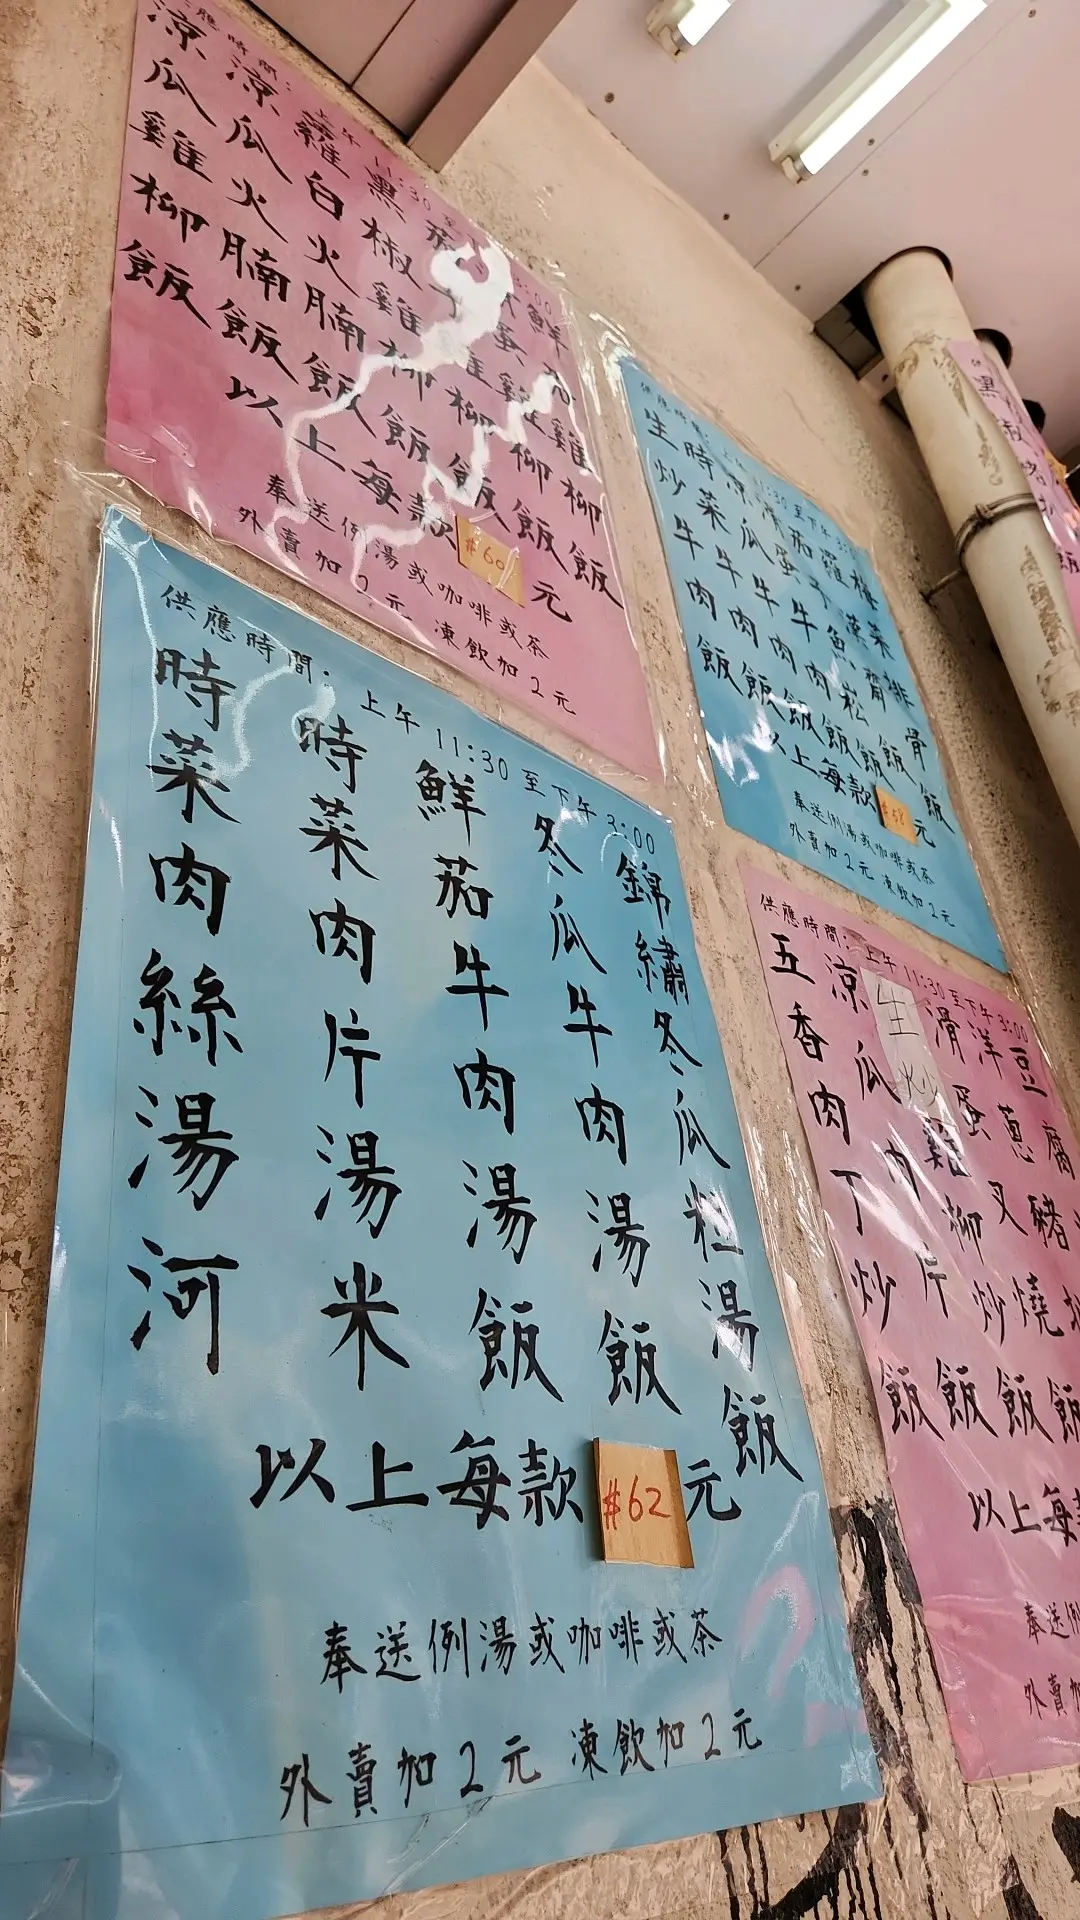 應時間：上午 11:30 至 3:00
涼瓜雞柳飯
涼瓜火腩飯
蘿白火腩飯
黑椒雞柳飯
茄雞柳飯
蛋雞柳飯
鮮茄雞柳飯
以上每款 #60 元
奉送例湯或咖啡或茶
外賣加2元 凍飲加2元
供應時間：上午 11:30 至下午 3:00
生炒牛肉飯
時菜牛肉飯
涼瓜牛肉飯
滑蛋牛肉飯
茄子魚崧飯
羅漢齋飯
梅菜排骨飯
以上每款 #58 元
奉送例湯或咖啡或茶
外賣加2元 凍飲加2元
供應時間：上午 11:30 至下午 3:00
時菜肉絲湯河
時菜肉片湯米
鮮茄牛肉湯飯
冬瓜牛肉湯飯
錦繡冬瓜粒湯飯
以上每款 #62 元
奉送例湯或咖啡或茶
外賣加2元 凍飲加2元
供應時間：上午 11:30 至下午 3:00
五香肉丁炒飯
涼瓜肉片飯
生炒雞柳飯
滑蛋叉燒飯
洋蔥豬
豆腐
以上每款
奉送
外賣加